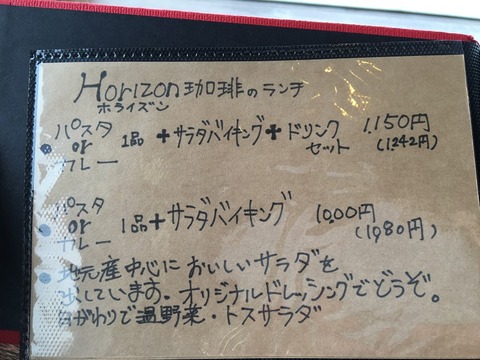 Horizon珈琲のランチ
ホライズン
パスタ or カレー 1品 + サラダバイキング + ドリンクセット 1,150円
(1242円)
パスタ or カレー 1品 + サラダバイキング 1000円
(1,080円)
地元産中心においしいサラダを
出しています。オリジナルドレッシングでどうぞ。
日がわりで温野菜・トスサラダ